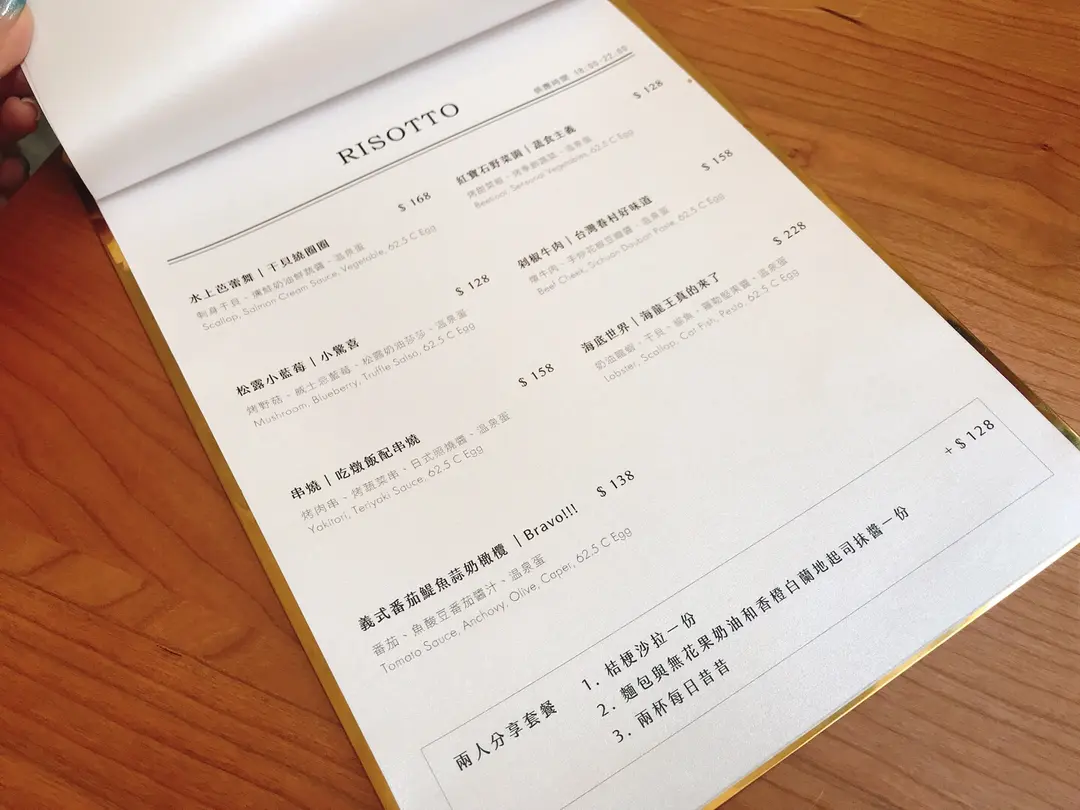 供應時間 18:00-22:00
RISOTTO
水上芭蕾舞 | 干貝繞圈圈
$ 168
刺身干貝、燻鮭奶油鮮蔬醬、溫泉蛋
Scallop, Salmon Cream Sauce, Vegetable, 62.5 C Egg
松露小藍莓 | 小驚喜
$ 128
烤野菇、威士忌藍莓、松露奶油莎莎、溫泉蛋
Mushroom, Blueberry, Truffle Salsa, 62.5 C Egg
串燒 | 吃燉飯配串燒
$ 158
烤肉串、烤蔬菜串、日式照燒醬、溫泉蛋
Yakitori, Teriyaki Sauce, 62.5 C Egg
義式番茄鯷魚蒜奶橄欖 | Bravo!!!
$ 138
番茄、魚酸豆番茄醬汁、溫泉蛋
Tomato Sauce, Anchovy, Olive, Caper, 62.5 C Egg
紅寶石野菜園 | 蔬食主義
$ 128
烤甜菜根、烤季節蔬菜、溫泉蛋
Beetroot, Seasonal Vegetables, 62.5 C Egg
剁椒牛肉 | 台灣眷村好味道
$ 158
燉牛肉、手炒花椒豆瓣醬、溫泉蛋
Beef Cheek, Sichuan Douban Paste, 62.5 C Egg
海底世界 | 海龍王真的來了
$ 228
奶油龍蝦、干貝、鯰魚、羅勒堅果醬、溫泉蛋
Lobster, Scallop, Cat Fish, Pesto, 62.5 C Egg
兩人分享套餐
+ $ 128
1. 桔梗沙拉一份
2. 麵包與無花果奶油和香橙白蘭地起司抹醬一份
3. 兩杯每日昔昔